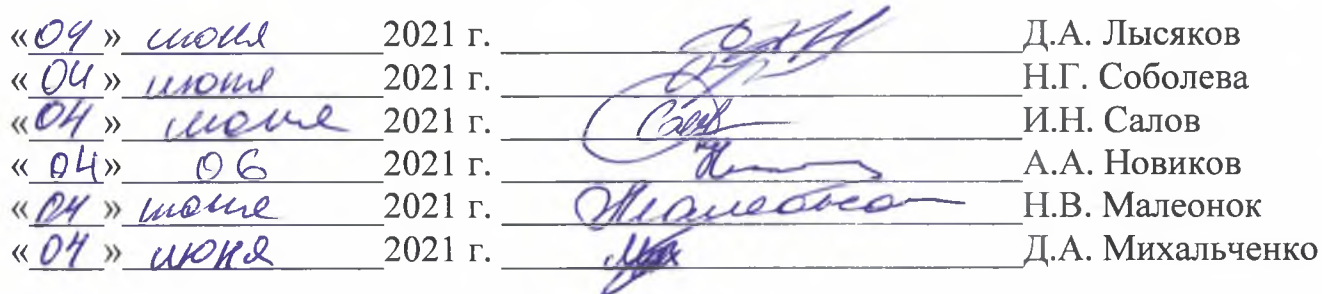 «04» июня 2021 г. Д.А. Лысяков
«04» июня 2021 г. Н.Г. Соболева
«04» июня 2021 г. И.Н. Салов
«04» 06 2021 г. А.А. Новиков
«04» июня 2021 г. Н.В. Малеонок
«04» июня 2021 г. Д.А. Михальченко